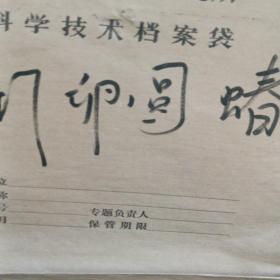 科学技术档案袋
卵圆蝽
位
称
号 专题负责人
月 保管期限